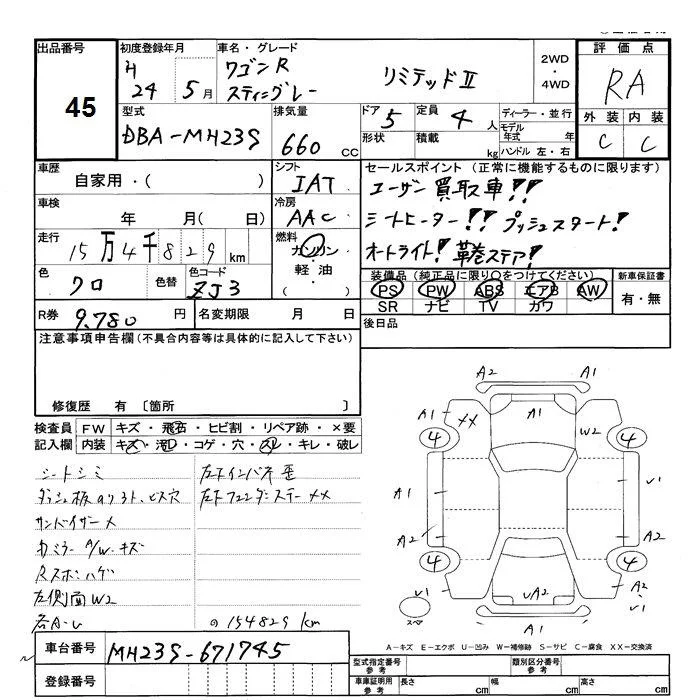 出品番号
45
初度登録年月
H 24 5月
車名・グレード
ワゴンR
スティングレー
リミテッドⅡ
2WD
・
4WD
評価点
RA
外装 内装
C C
型式
DBA-MH23S
排気量
660 cc
ドア 5
形状
定員 4 人
積載 kg
ディーラー・並行
モデル年式 年
ハンドル 左・右
車歴
自家用・( )
シフト
IAT
セールスポイント (正常に機能するものに限ります)
ユーザー買取車!!
シートヒーター!! プッシュスタート!
オートライト! 革巻ステア!
車検
年 月( 日)
冷房
AAC
走行
15万4千829km
燃料
ガソリン
・
軽油・
( )
色
クロ
色替
色コード
ZJ3
装備品 (純正品に限り○をつけてください)
PS PW ABS エアB AW
SR ナビ TV カワ
新車保証書
有・無
R券 9,780円
名変期限 月 日
後日品
注意事項申告欄(不具合内容等は具体的に記入して下さい)
修復歴 有 〔箇所 〕
検査員記入欄
FW キズ・飛石・ヒビ割・リペア跡・×要
内装 キズ・汚レ・コゲ・穴・スレ・キレ・破レ
シートシミ
ダッシュ板のリあト、ビス穴
サンバイザー×
カミラー A/W.キズ
Rスポハゲ
左側面W2
各A-U
左下フェンダーステー××
の154829km
A2 A1
A1 ×× A1 W2 A1
4 4
A1 U1
A2 A2
4 4
U1 UA2 A2
U1
スペア
A1
A-キズ E-エクボ U-凹み W-補修跡 S-サビ C-腐食 XX-交換済
車台番号 MH23S-671745
登録番号
型式指定番号
参考
類別区分番号
参考
車庫証明用
参考
長さ cm
幅 cm
高さ cm